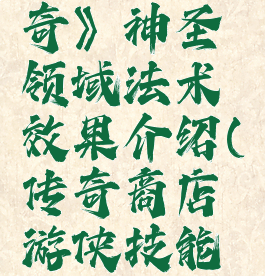 奇》神圣
领域法术
效果介绍(
传奇商店
游侠技能